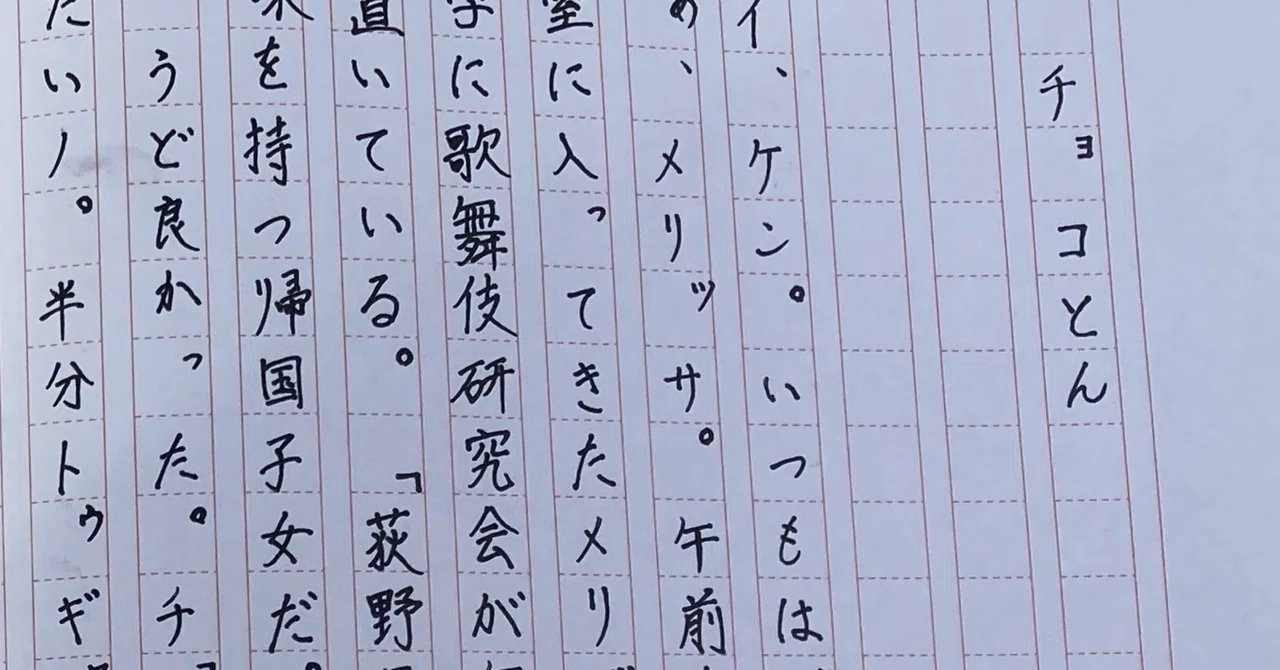 チョコとん
イ、ケン。いつもは
め、メリッサ。午前
室に入ってきたメリ
学に歌舞伎研究会が
直いている。「荻野
味を持つ帰国子女だ。
うど良かった。チ
たいノ。半分トゥギ